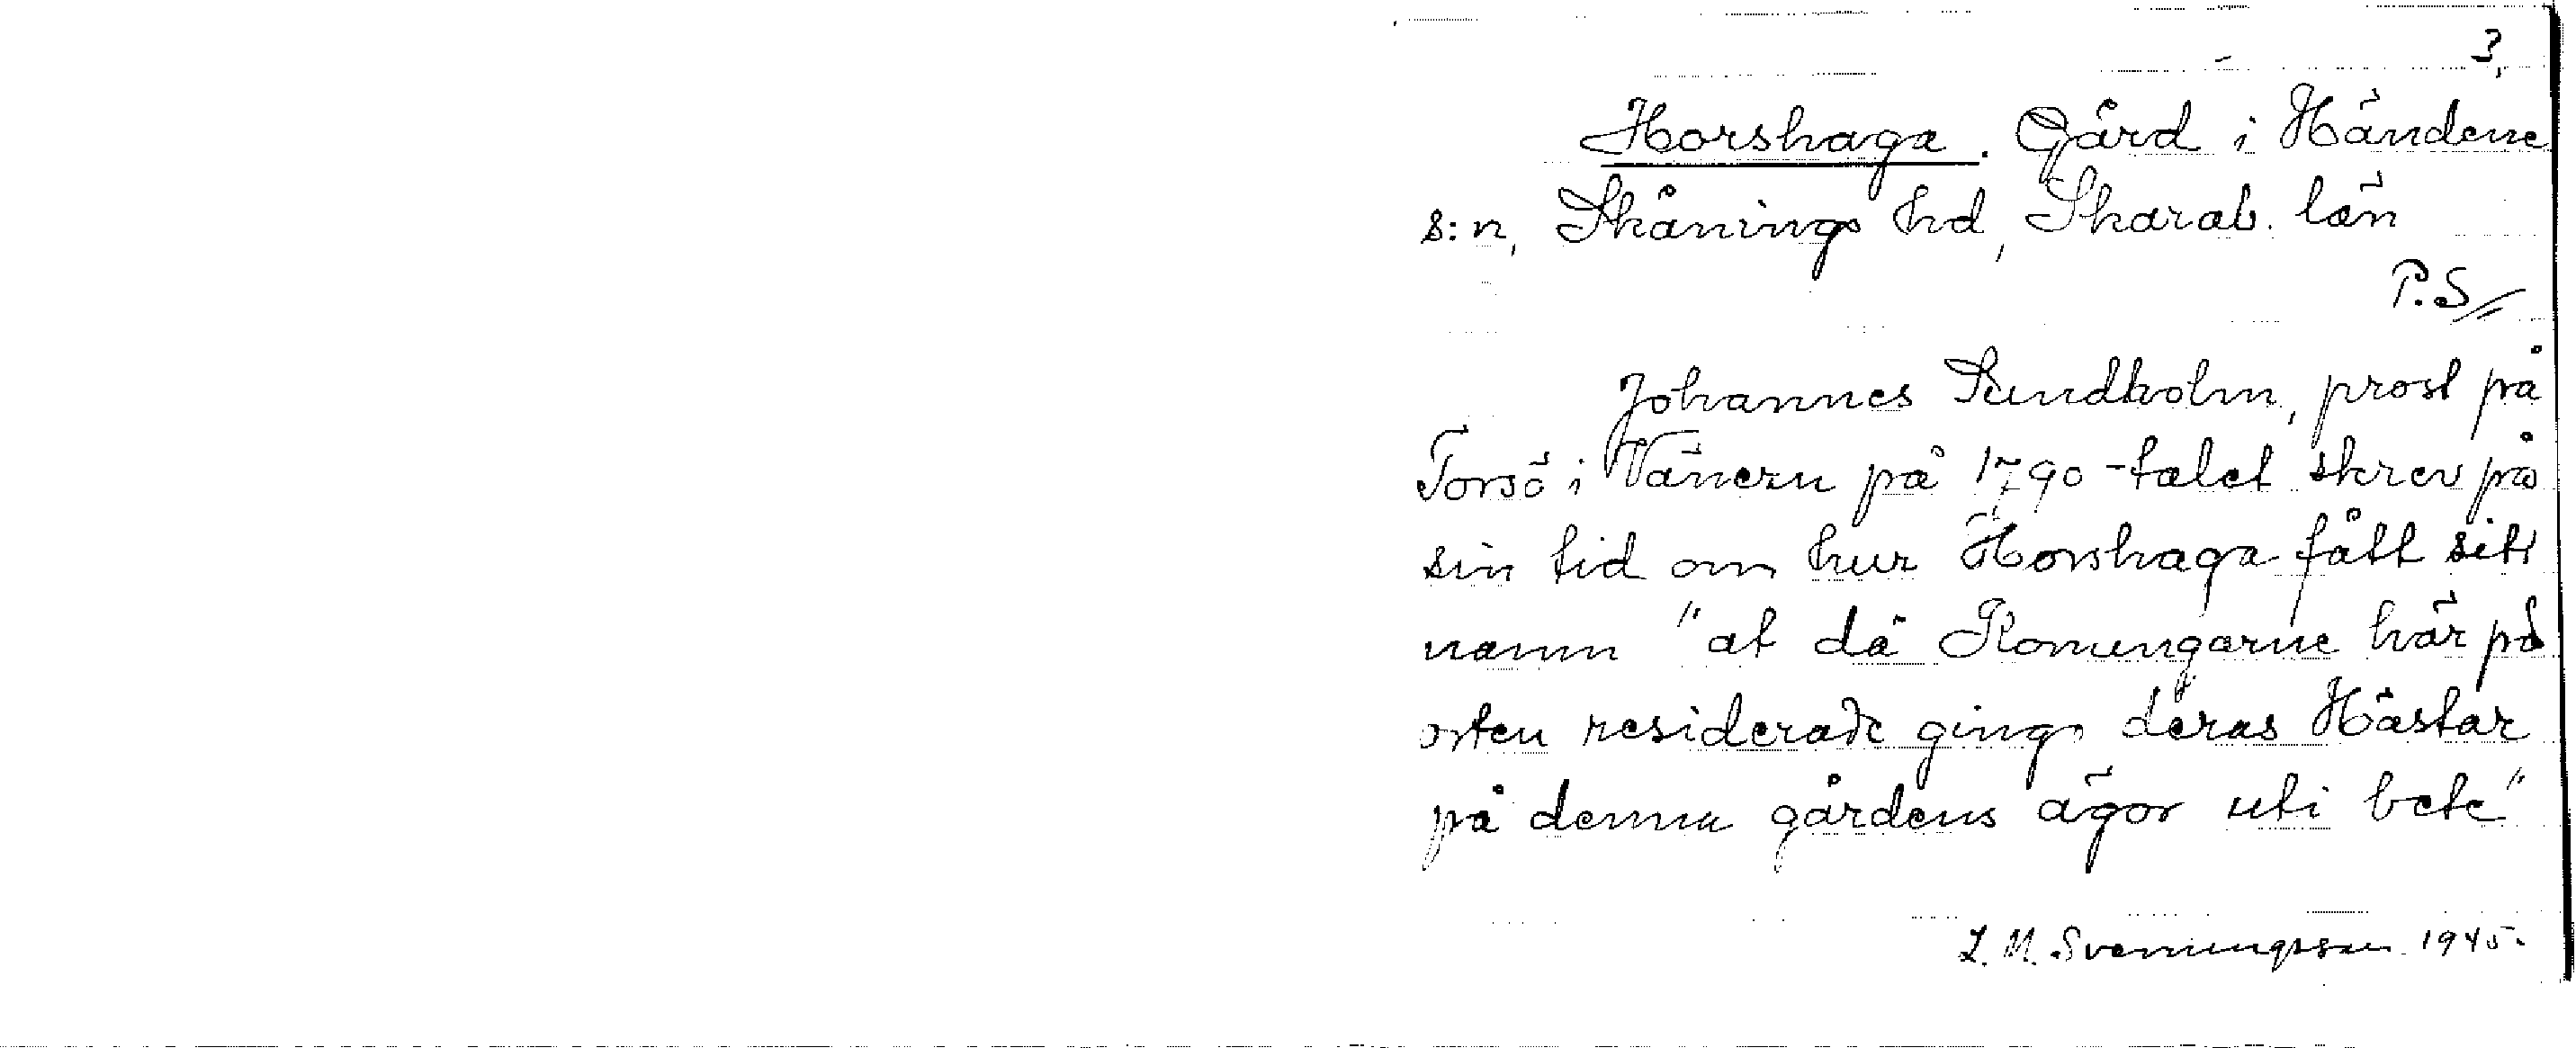 3.
Horshaga. Gård i Händene
s:n, Skånings hd, Skarab. län
P.S
Johannes Sundholm, prost på
Torsö i Vänern på 1790-talet skrev på
sin tid om hur Horshaga fått sitt
namn "at då Konungarne här på
orten residerade gingo deras Hästar
på denna gårdens ägor uti bete"
L. M. Svenungsson 1945.